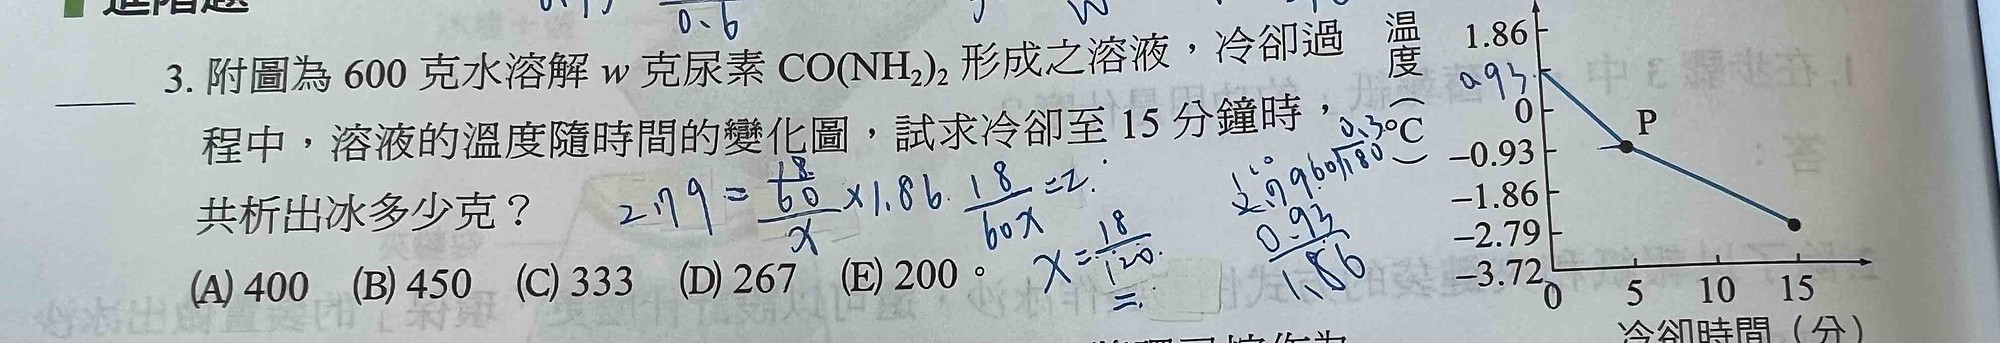 進階題
0.6
W
3. 附圖為 600 克水溶解 w 克尿素 CO(NH₂)₂ 形成之溶液，冷卻過
程中，溶液的溫度隨時間的變化圖，試求冷卻至 15 分鐘時，
共析出冰多少克？
(A) 400 (B) 450 (C) 333 (D) 267 (E) 200。
2.79 = 18/60 / x × 1.86
18 / 60x = 2
x = 18/120
2.79
0.93
1.86
0.3
60 180
溫度（°C）
1.86
0.93
0
−0.93
−1.86
−2.79
−3.72
P
0 5 10 15
冷卻時間（分）